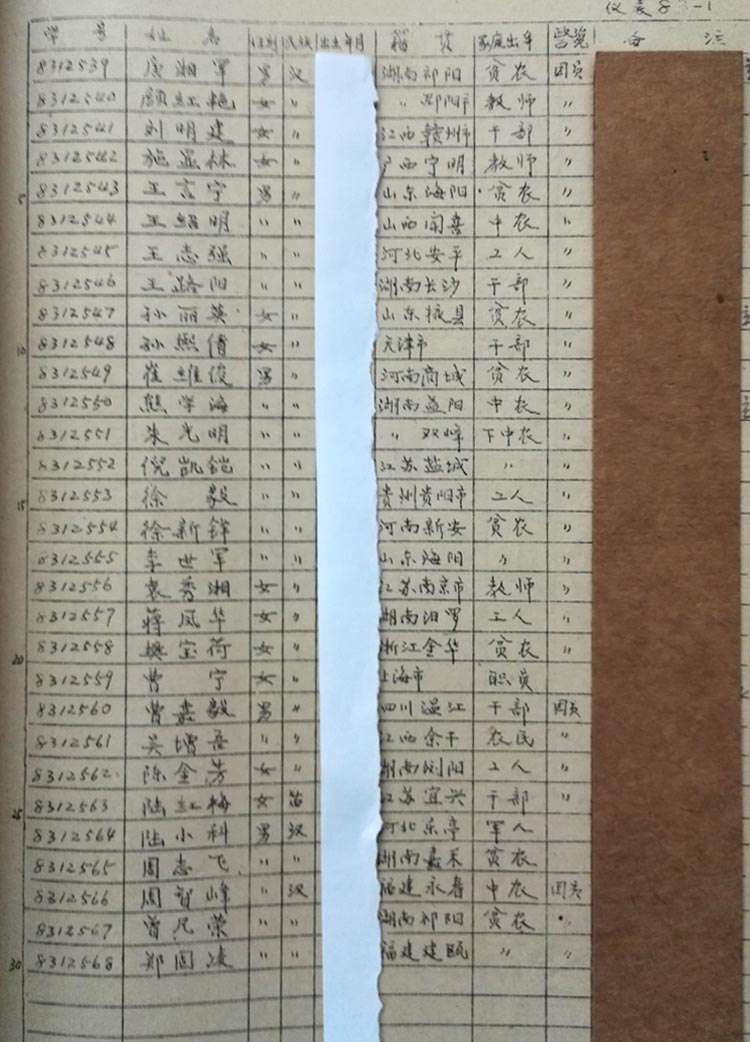 仪表83-1
学号 姓名 性别 民族 出生年月 籍贯 家庭出身 备注
8312539 唐湘军 男 汉 湖南祁阳 贫农 团员
8312540 颜红艳 女 〃 〃 邵阳市 教师 〃
8312541 刘明建 女 〃 江西赣州市 干部 〃
8312542 施显林 女 〃 广西宁明 教师 〃
5 8312543 王言宁 男 〃 山东海阳 贫农 〃
8312544 王绍明 〃 〃 山西闻喜 中农 〃
8312545 王志强 〃 〃 河北安平 工人 〃
8312546 王路阳 〃 〃 湖南长沙 干部 〃
8312547 孙丽英 女 〃 山东掖县 贫农 〃
10 8312548 孙熙倩 女 〃 天津市 干部 〃
8312549 崔维俊 男 〃 河南商城 贫农 〃
8312550 熊学海 〃 〃 湖南益阳 中农 〃
8312551 朱光明 〃 〃 〃 双峰 下中农 〃
8312552 倪凯铠 〃 〃 江苏盐城 〃 〃
15 8312553 徐毅 〃 〃 贵州贵阳市 工人 〃
8312554 徐新 〃 〃 河南新安 贫农 〃
8312555 李世军 〃 〃 山东海阳 〃 〃
8312556 袁秀湘 女 〃 江苏南京市 教师 〃
8312557 蒋凤华 女 〃 湖南汨罗 工人 〃
20 8312558 樊宝荷 女 〃 浙江金华 贫农 〃
8312559 曹宁 女 〃 上海市 职员
8312560 曹嘉毅 男 〃 四川温江 干部 团员
8312561 吴增吾 〃 〃 江西余干 农民 〃
8312562 陈金芳 女 〃 湖南浏阳 工人 〃
25 8312563 陆红梅 女 苗 江苏宜兴 干部 〃
8312564 陆小科 男 汉 河北乐亭 军人
8312565 周志飞 〃 〃 湖南嘉禾 贫农
8312566 周智峰 〃 汉 福建永春 中农 团员
8312567 曾凡荣 〃 〃 湖南祁阳 贫农
30 8312568 郑国 〃 〃 福建建瓯 〃 〃